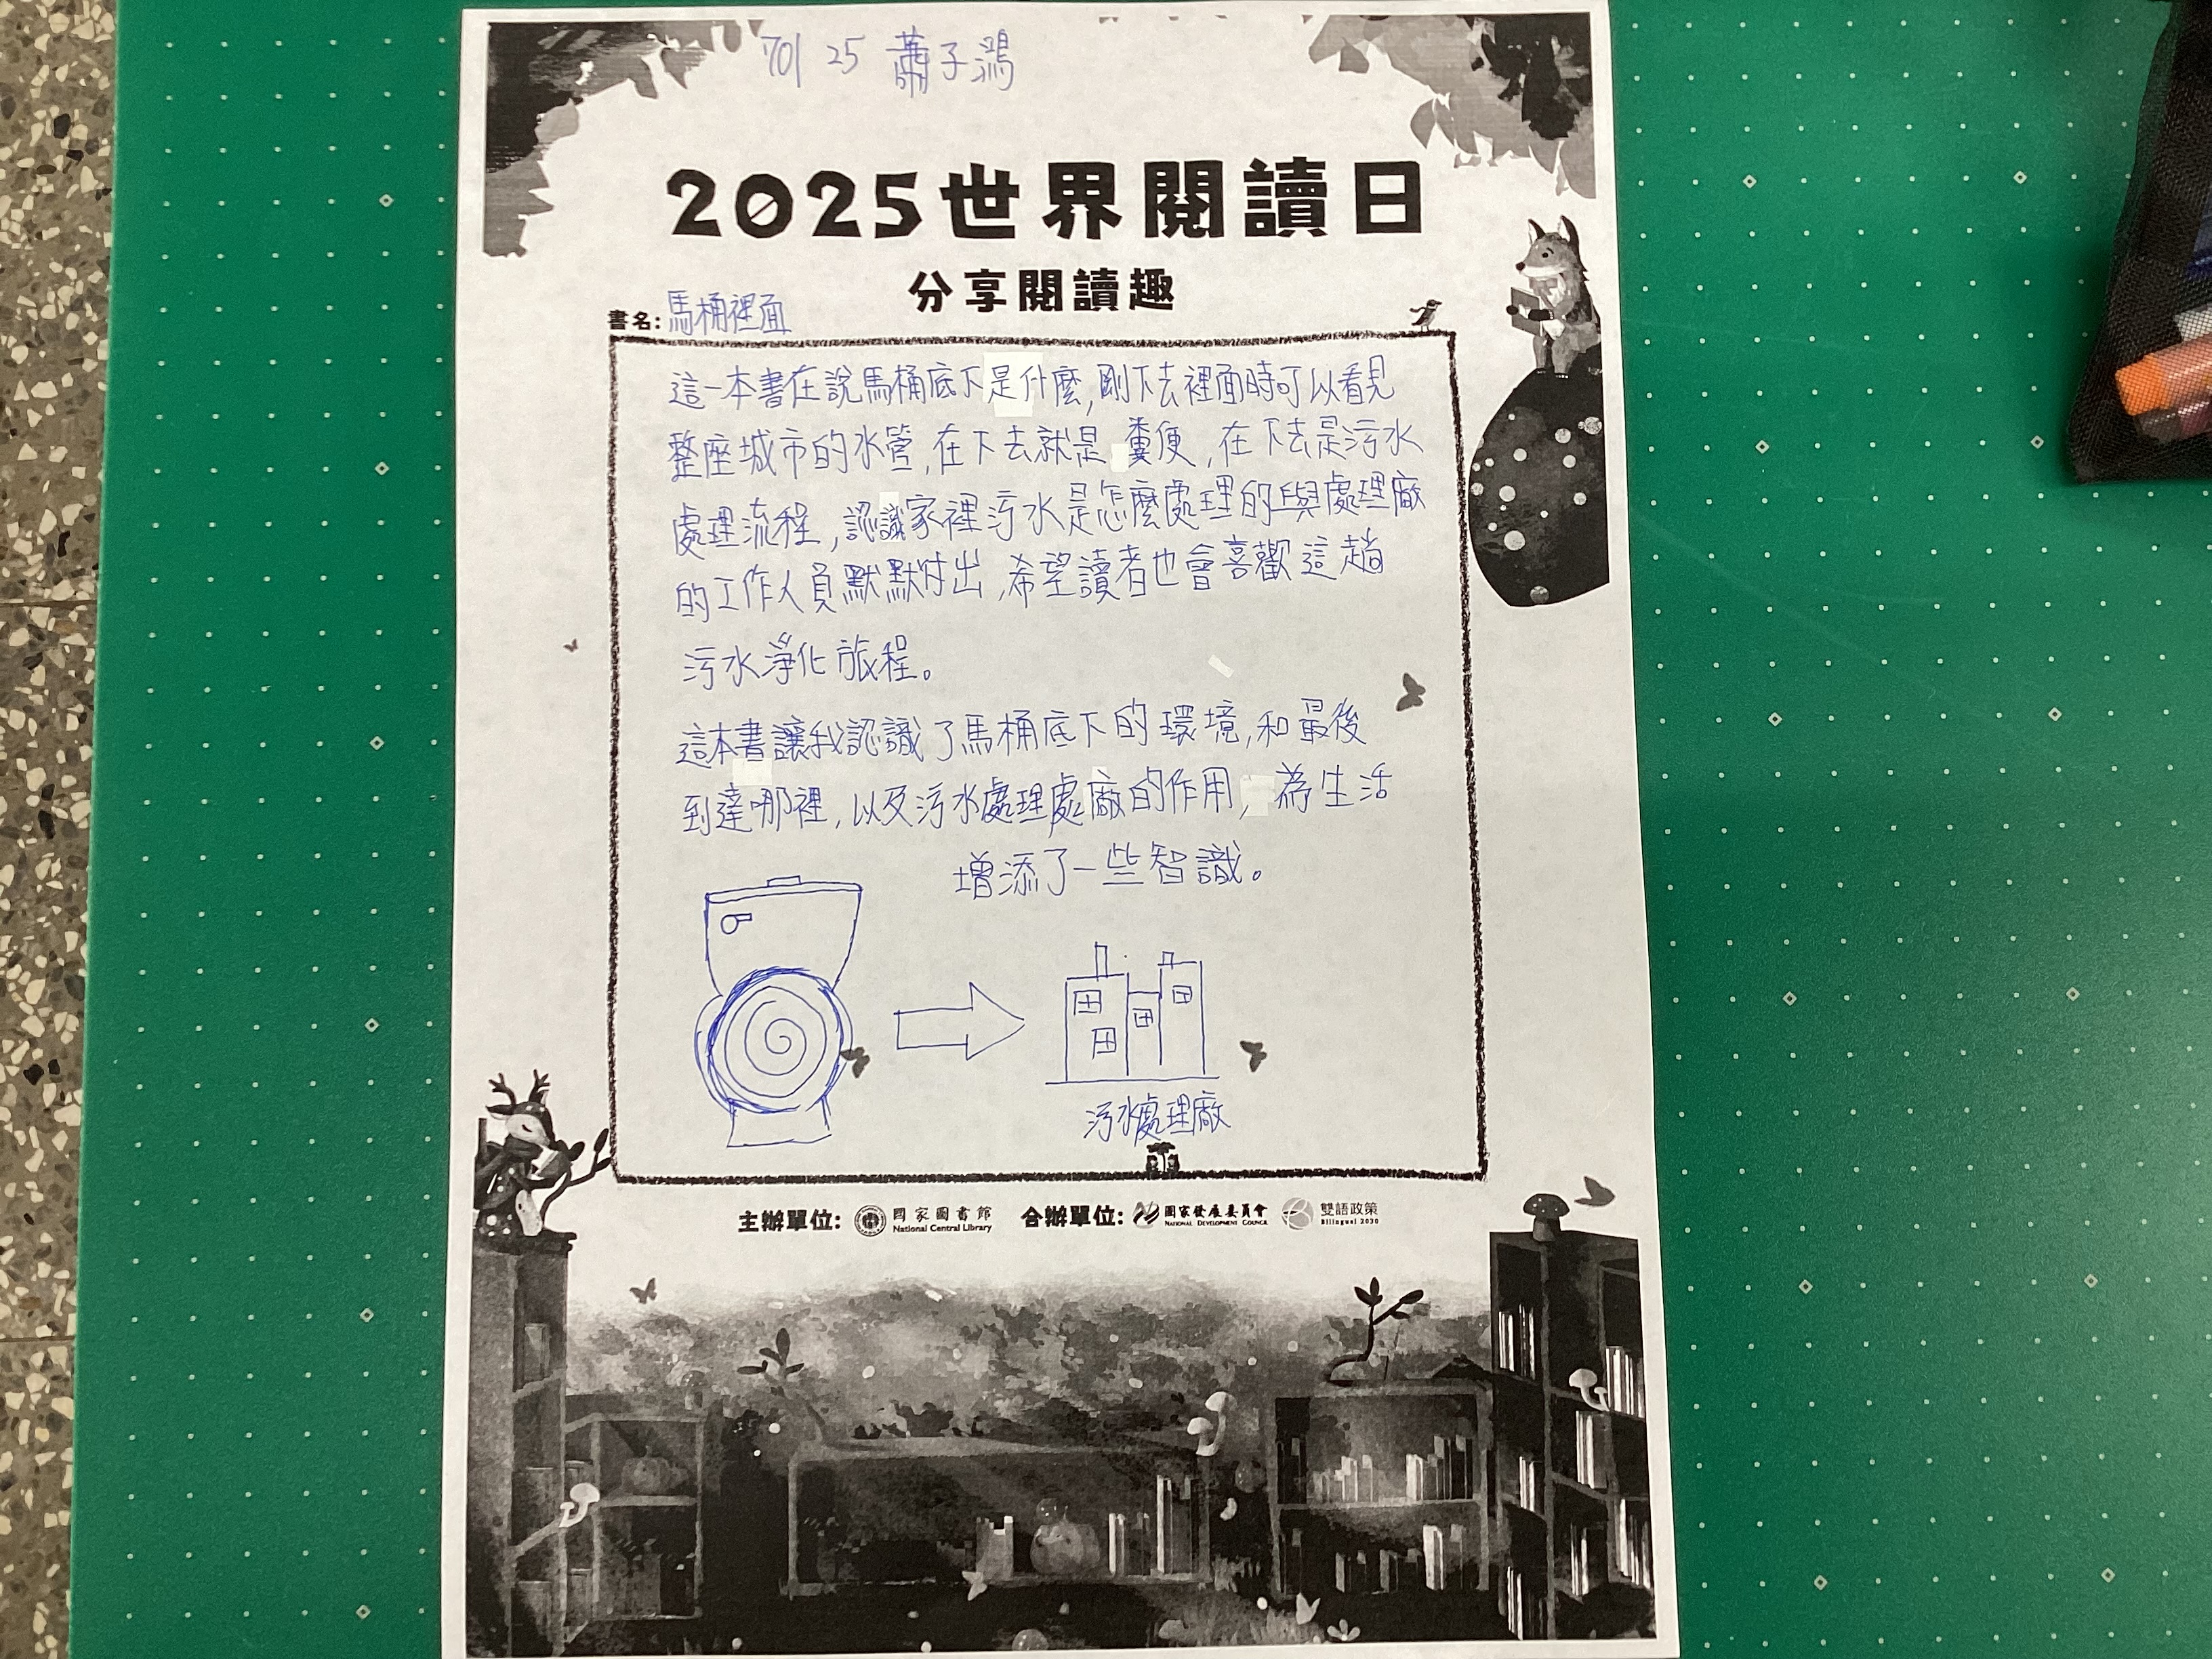 701 25 蕭子鴻
2025世界閱讀日
分享閱讀趣
書名:馬桶裡面
這一本書在說馬桶底下是什麼,剛下去裡面時可以看見
整座城市的水管,在下去就是糞便,在下去是污水
處理流程,認識家裡污水是怎麼處理的與處理廠
的工作人員默默付出,希望讀者也會喜歡這趟
污水淨化旅程。
這本書讓我認識了馬桶底下的環境,和最後
到達哪裡,以及污水處理處廠的作用,為生活
增添了一些智識。
污水處理廠
主辦單位: 國家圖書館 National Central Library 合辦單位: 國家發展委員會 NATIONAL DEVELOPMENT COUNCIL 雙語政策 Bilingual 2030